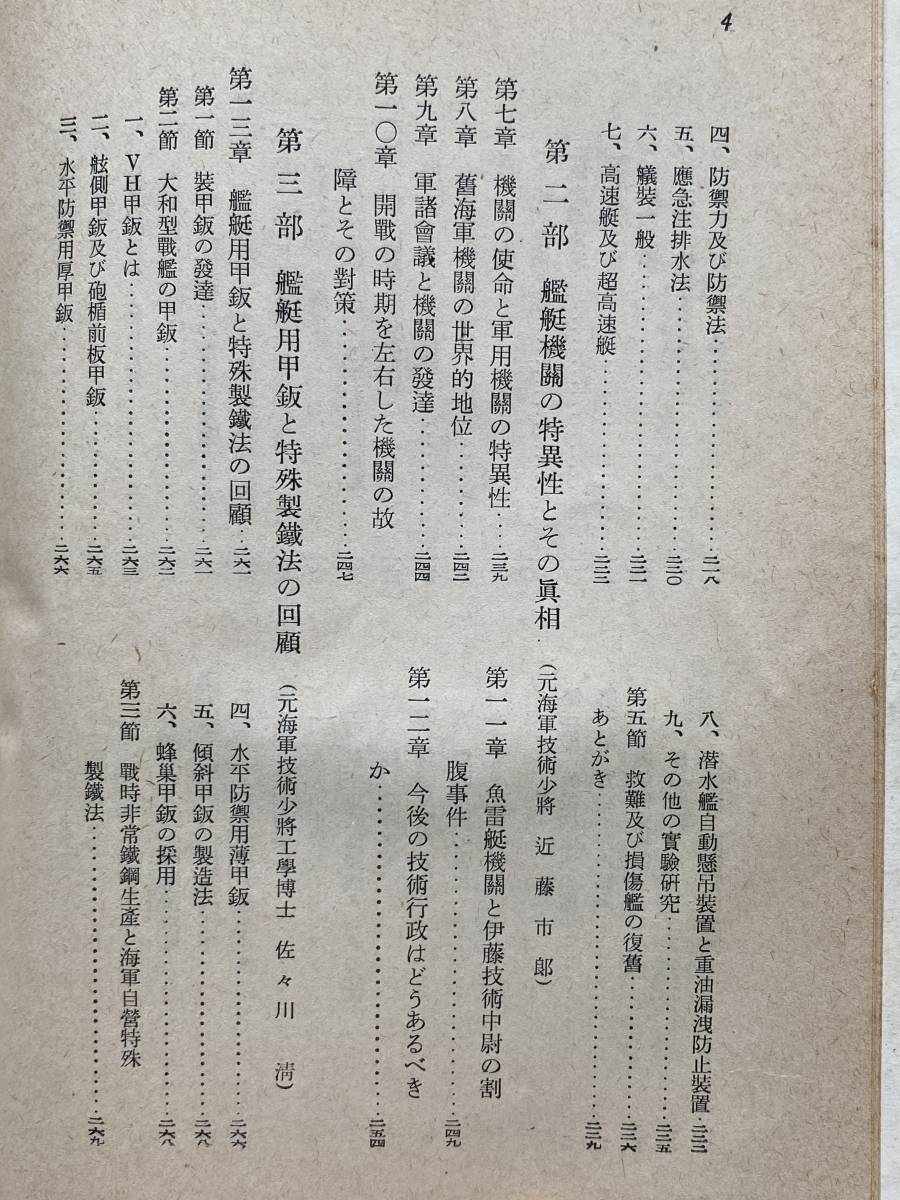 4
四、防禦力及び防禦法……………二一八
五、應急注排水法……………二二〇
六、艤裝一般……………二二一
七、高速艇及び超高速艇……………二二二
八、潜水艦自動懸吊裝置と重油漏洩防止裝置…二二三
九、その他の實驗硏究……………二二五
第五節 救難及び損傷艦の復舊……………二二六
あとがき……………二二九
第二部 艦艇機關の特異性とその眞相 (元海軍技術少將 近藤市郞)
第七章 機關の使命と軍用機關の特異性……二三九
第八章 舊海軍機關の世界的地位……………二四二
第九章 軍諸會議と機關の發達……………二四四
第一〇章 開戰の時期を左右した機關の故
障とその對策……………二四七
第一一章 魚雷艇機關と伊藤技術中尉の割
腹事件……………二四九
第一二章 今後の技術行政はどうあるべき
か……………二五四
第三部 艦艇用甲鈑と特殊製鐵法の回顧 (元海軍技術少將工學博士 佐々川 淸)
第一三章 艦艇用甲鈑と特殊製鐵法の回顧…二六一
第一節 裝甲鈑の發達……………二六一
第二節 大和型戰艦の甲鈑……………二六二
一、VH甲鈑とは……………二六三
二、舷側甲鈑及び砲楯前板甲鈑……………二六五
三、水平防禦用厚甲鈑……………二六六
四、水平防禦用薄甲鈑……………二六六
五、傾斜甲鈑の製造法……………二六八
六、蜂巢甲鈑の採用……………二六八
第三節 戰時非常鐵鋼生產と海軍自營特殊
製鐵法……………二六九